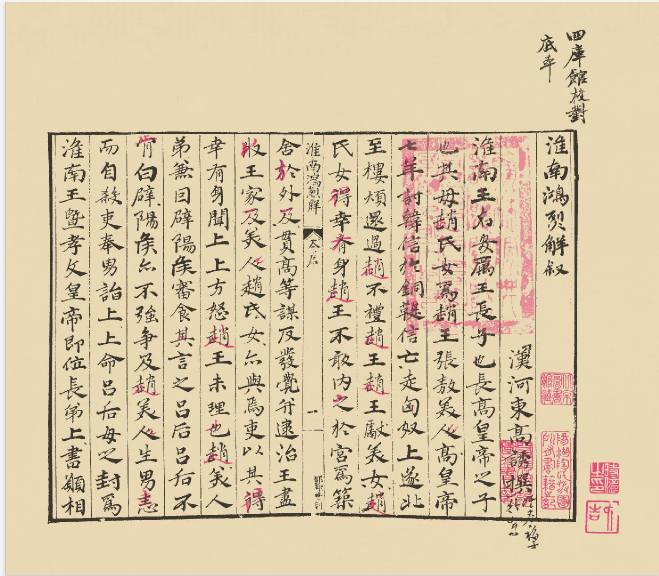 四庫館校對
底本
淮南鴻烈解叙
漢河東高誘撰
淮南王名安厲王長子也長高皇帝之子
也其母趙氏女爲趙王張敖美人高皇帝
七年討韓信於銅鞮信亡走匈奴上遂北
至樓煩還過趙不禮趙王趙王獻美女趙
氏女得幸有身趙王不敢内之於宮爲築
淮南鴻烈解
一
舍於外及貫高等謀反發覺并逮治王盡
收王家及美人趙氏女亦與焉吏以其得
幸有身聞上上方怒趙王未理也趙美人
弟兼因辟陽侯審食其言之呂后呂后不
肯白辟陽侯亦不強爭及趙美人生男恚
而自殺吏奉男詣上上命呂后母之封爲
淮南王暨孝文皇帝即位長弟上書願相